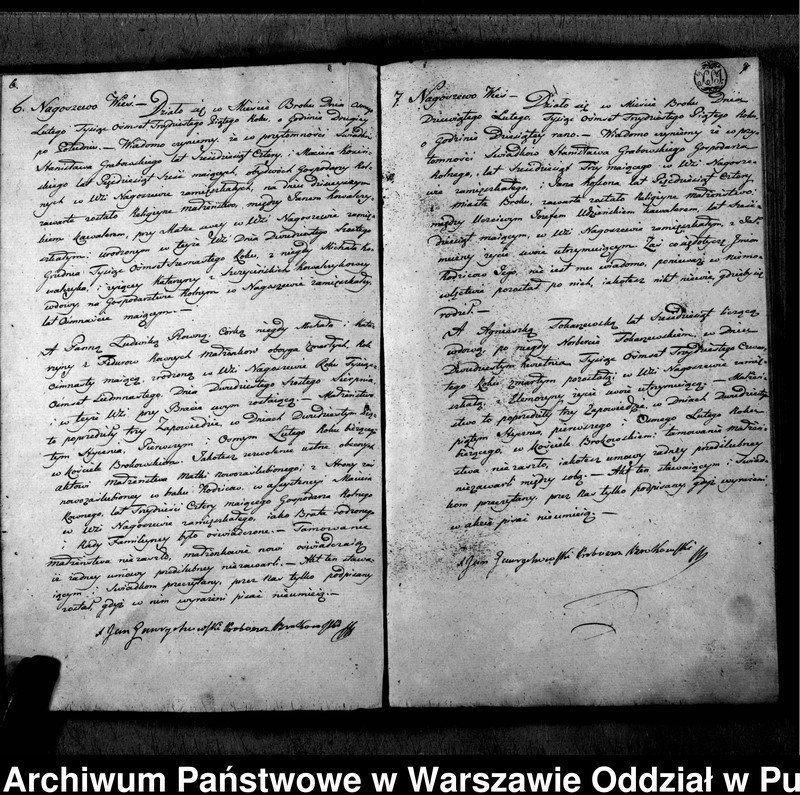 6.
6. Nagoszewo Wieś. — Działo się w Mieście Broku Dnia
Lutego Tysiąc Ośmset Trzydziestego Piątego Roku, o Godzinie Drugiey
po Południu. — Wiadomo czyniemy, że w przytomności Świadków
Stanisława Grabowskiego lat Sześćdziesiąt Cztery, i Macieia
lat Pięćdziesiąt Sześć maiących, obydwóch Gospodarzy Rol-
nych w Wsi Nagoszewie zamięszkałych, na dniu dzisieyszym
zawarte zostało Religijne małżeństwo, między Janem Kowalczy-
kiem Kawalerem, przy Matce swey w Wsi Nagoszewie zamięsz-
kałym; urodzonym w teyże Wsi Dnia Dwudziestego Szóstego
Grudnia Tysiąc Ośmset Szesnastego Roku, z niegdy Michała Ko-
walczyka, i żyiącey Katarzyny z Kowalczykowey
wdowy, na Gospodarstwie Rolnym w Nagoszewie zamięszkałey,
lat Ośmnaście maiącym. —
A Panną Ludwiką Rowną, Córką niegdy Michała i Kata-
rzyny z Fidurow Rownych Małżonków oboyga zmarłych, Rok
ośmnasty maiącą, rodzoną w Wsi Nagoszewie Roku Tysiąc
Ośmset Siedmnastego, Dnia Dwudziestego Szóstego Sierpnia,
i w teyże Wsi przy Bracie swym zostaiącą. — Małżeństwo
to poprzedziły trzy Zapowiedzie, w Dniach Dwudziestym Pią-
tym Stycznia, Pierwszym i Ósmym Lutego Roku bieżącego
w Kościele Brokowskim. Jakoteż zezwolenie ustne obecney
aktowi małżeństwa Matki nowozaślubionego; z Strony zaś
nowozaślubioney w braku Rodziców, w assystencyi Macieia
Rownego, lat Trzydzieści Cztery maiącego Gospodarza Rolnego
w Wsi Nagoszewie zamięszkałego, iako Brata rodzonego
i Rady Familiyney było oświadczone. — Tamowanie
małżeństwa niezaszło, małżonkowie nowi oświadczaią
iż żadney umowy przedślubney niezawarli. — Akt ten stawa-
iącym i Świadkom przeczytany, przez Nas tylko podpisany
został, gdyż w nim wyrażeni pisać nieumieią. —
X Jan Proboszcz Brokowski
7.
7. Nagoszewo Wieś. — Działo się w Mieście Broku Dnia
Dziewiątego Lutego, Tysiąc Ośmset Trzydziestego Piątego Roku,
o Godzinie Dziesiątey rano. — Wiadomo czyniemy że w przy-
tomności Świadków Stanisława Grabowskiego Gospodarza
Rolnego, lat Sześćdziesiąt Trzy maiącego w Wsi Nagosze-
wie zamięszkałego, i Jana lat Pięćdziesiąt Cztery,
z miasta Broku, zawarte zostało Religijne Małżeństwo;
między Uczciwym Jozefem kawalerem, lat Sześć-
dziesiąt maiącym, w Wsi Nagoszewie zamięszkałym, z Jał-
mużny życie swoie utrzymuiącym. Zaś co się dotycze Imion
Rodziców Jego, nie iest mu wiadomo, ponieważ w niemo-
wlęctwie pozostał po nich, iakoteż nikt niewie, gdzieby się
rodził. —
A Agnieszką Tokarzewską lat Sześćdziesiąt liczącą
wdową, po niegdy Norbercie Tokarzewskim, w Dniu
Dwudziestym kwietnia Tysiąc Ośmset Trzydziestego Czwar-
tego Roku zmarłym pozostałą, w Wsi Nagoszewie zamięsz-
kałą, z Elemozyny życie swoie utrzymuiącą. — Małżeń-
stwo to poprzedziły trzy Zapowiedzie, w Dniach Dwudziestym
piątym Stycznia, pierwszego i Ósmego Lutego Roku
bieżącego, w Kościele Brokowskim: tamowanie Małżeń-
stwa niezaszło, iakoteż umowy żadney przedślubney
niezawarli między sobą. — Akt ten stawaiącym i Świad-
kom przeczytany, przez Nas tylko podpisany, gdyż wyrażeni
w akcie pisać nieumieią. —
X Jan Proboszcz Brokowski
Archiwum Państwowe w Warszawie Oddział w Pu